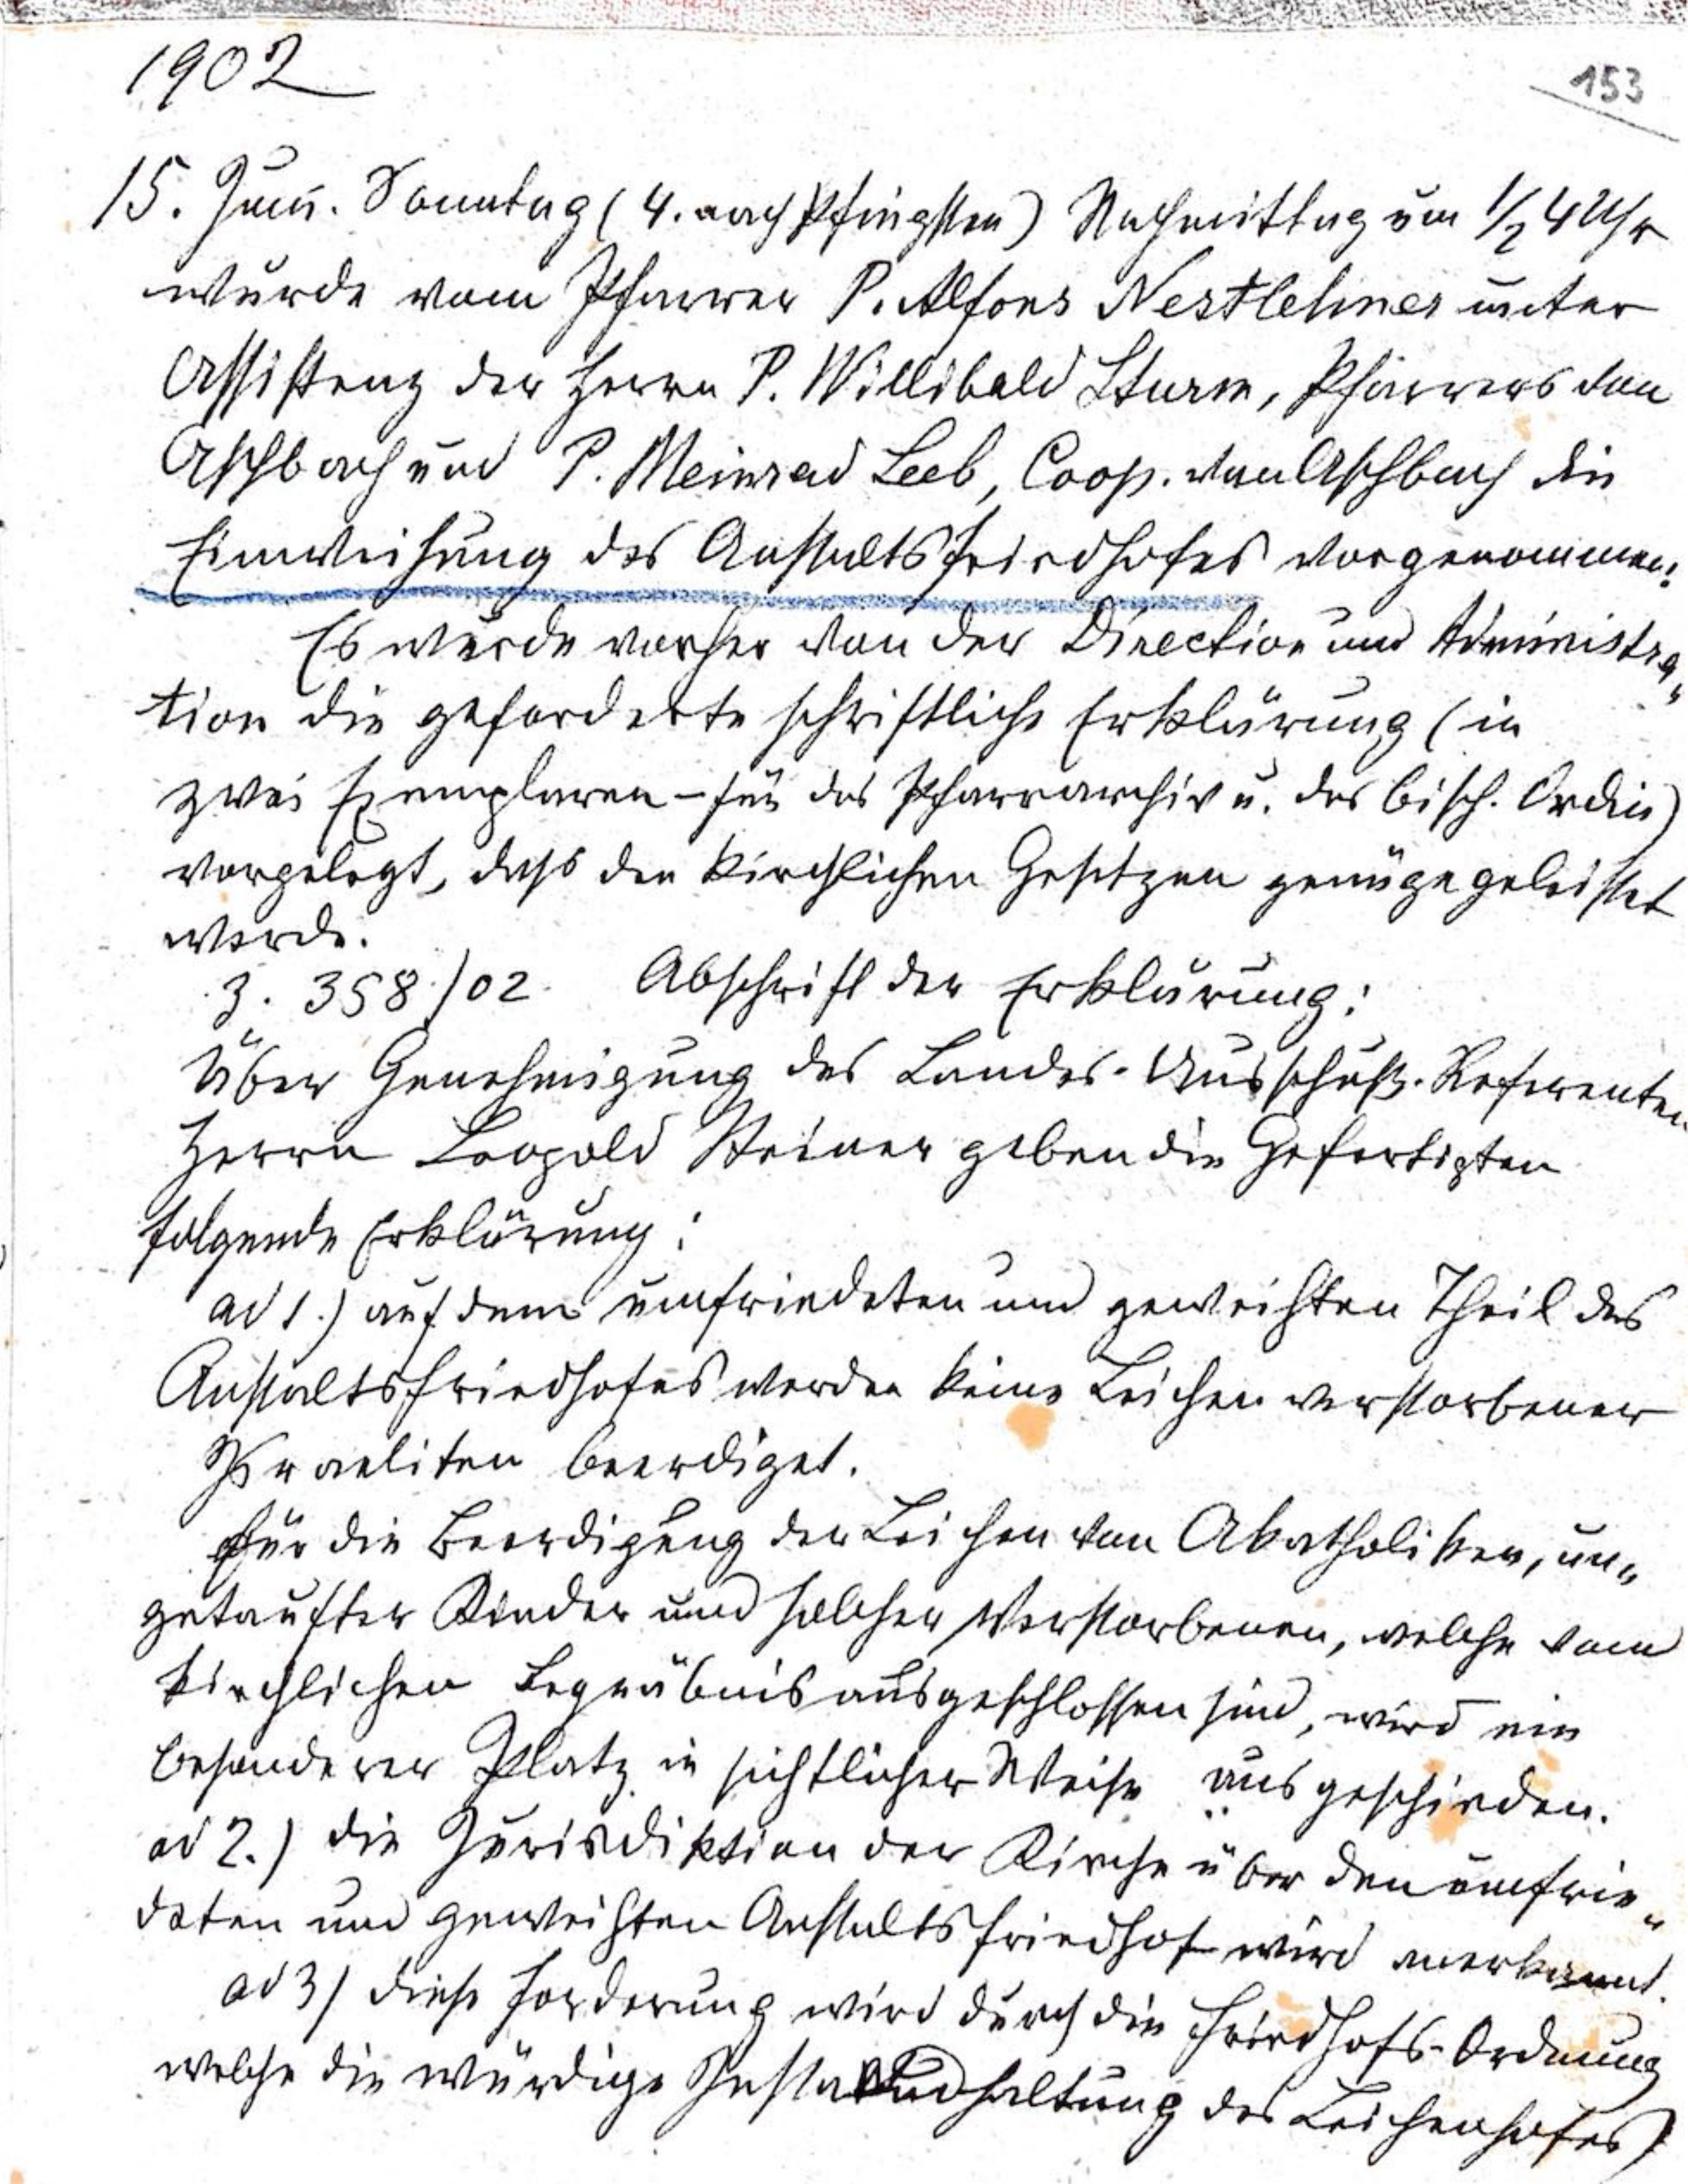 1902
153
15. Juni. Sonntag (4. nach Pfingsten) Nachmittag um 1/2 4 Uhr
wurde vom Pfarrer P. Alfons Nestlehner unter
Assistenz der Herrn P. Willibald Sturm, Pfarrers von
Aschbach und P. Meinrad Leeb, Coop. von Aschbach die
Einweihung des Anstaltsfriedhofes vorgenommen.
Es wurde vorher von der Direction und Administra„
tion die geforderte schriftliche Erklärung (in
zwei Exemplaren – für das Pfarrarchiv u. das bisch. Ordin)
vorgelegt, dass den kirchlichen Gesetzen genüge geleistet
werde.
Z. 358/02. Abschrift der Erklärung:
Über Genehmigung des Landes-Ausschuß-Referenten
Herrn Leopold Steiner geben die Gefertigten
folgende Erklärung:
ad 1.) auf dem umfriedeten und geweihten Theil des
Anstaltsfriedhofes werden keine Leichen verstorbener
Israeliten beerdiget.
Für die Beerdigung der Leichen von Akatholiken, un„
getaufter Kinder und solcher Verstorbenen, welche vom
kirchlichen Begräbnis ausgeschlossen sind, wird ein
besonderer Platz in sichtlicher Weise ausgeschieden.
ad 2.) die Jurisdiktion der Kirche über den umfrie„
deten und geweihten Anstaltsfriedhof wird anerkannt.
ad 3) diese Forderung wird durch die Friedhofs-Ordnung
welche die würdige Instandhaltung des Leichenhofes